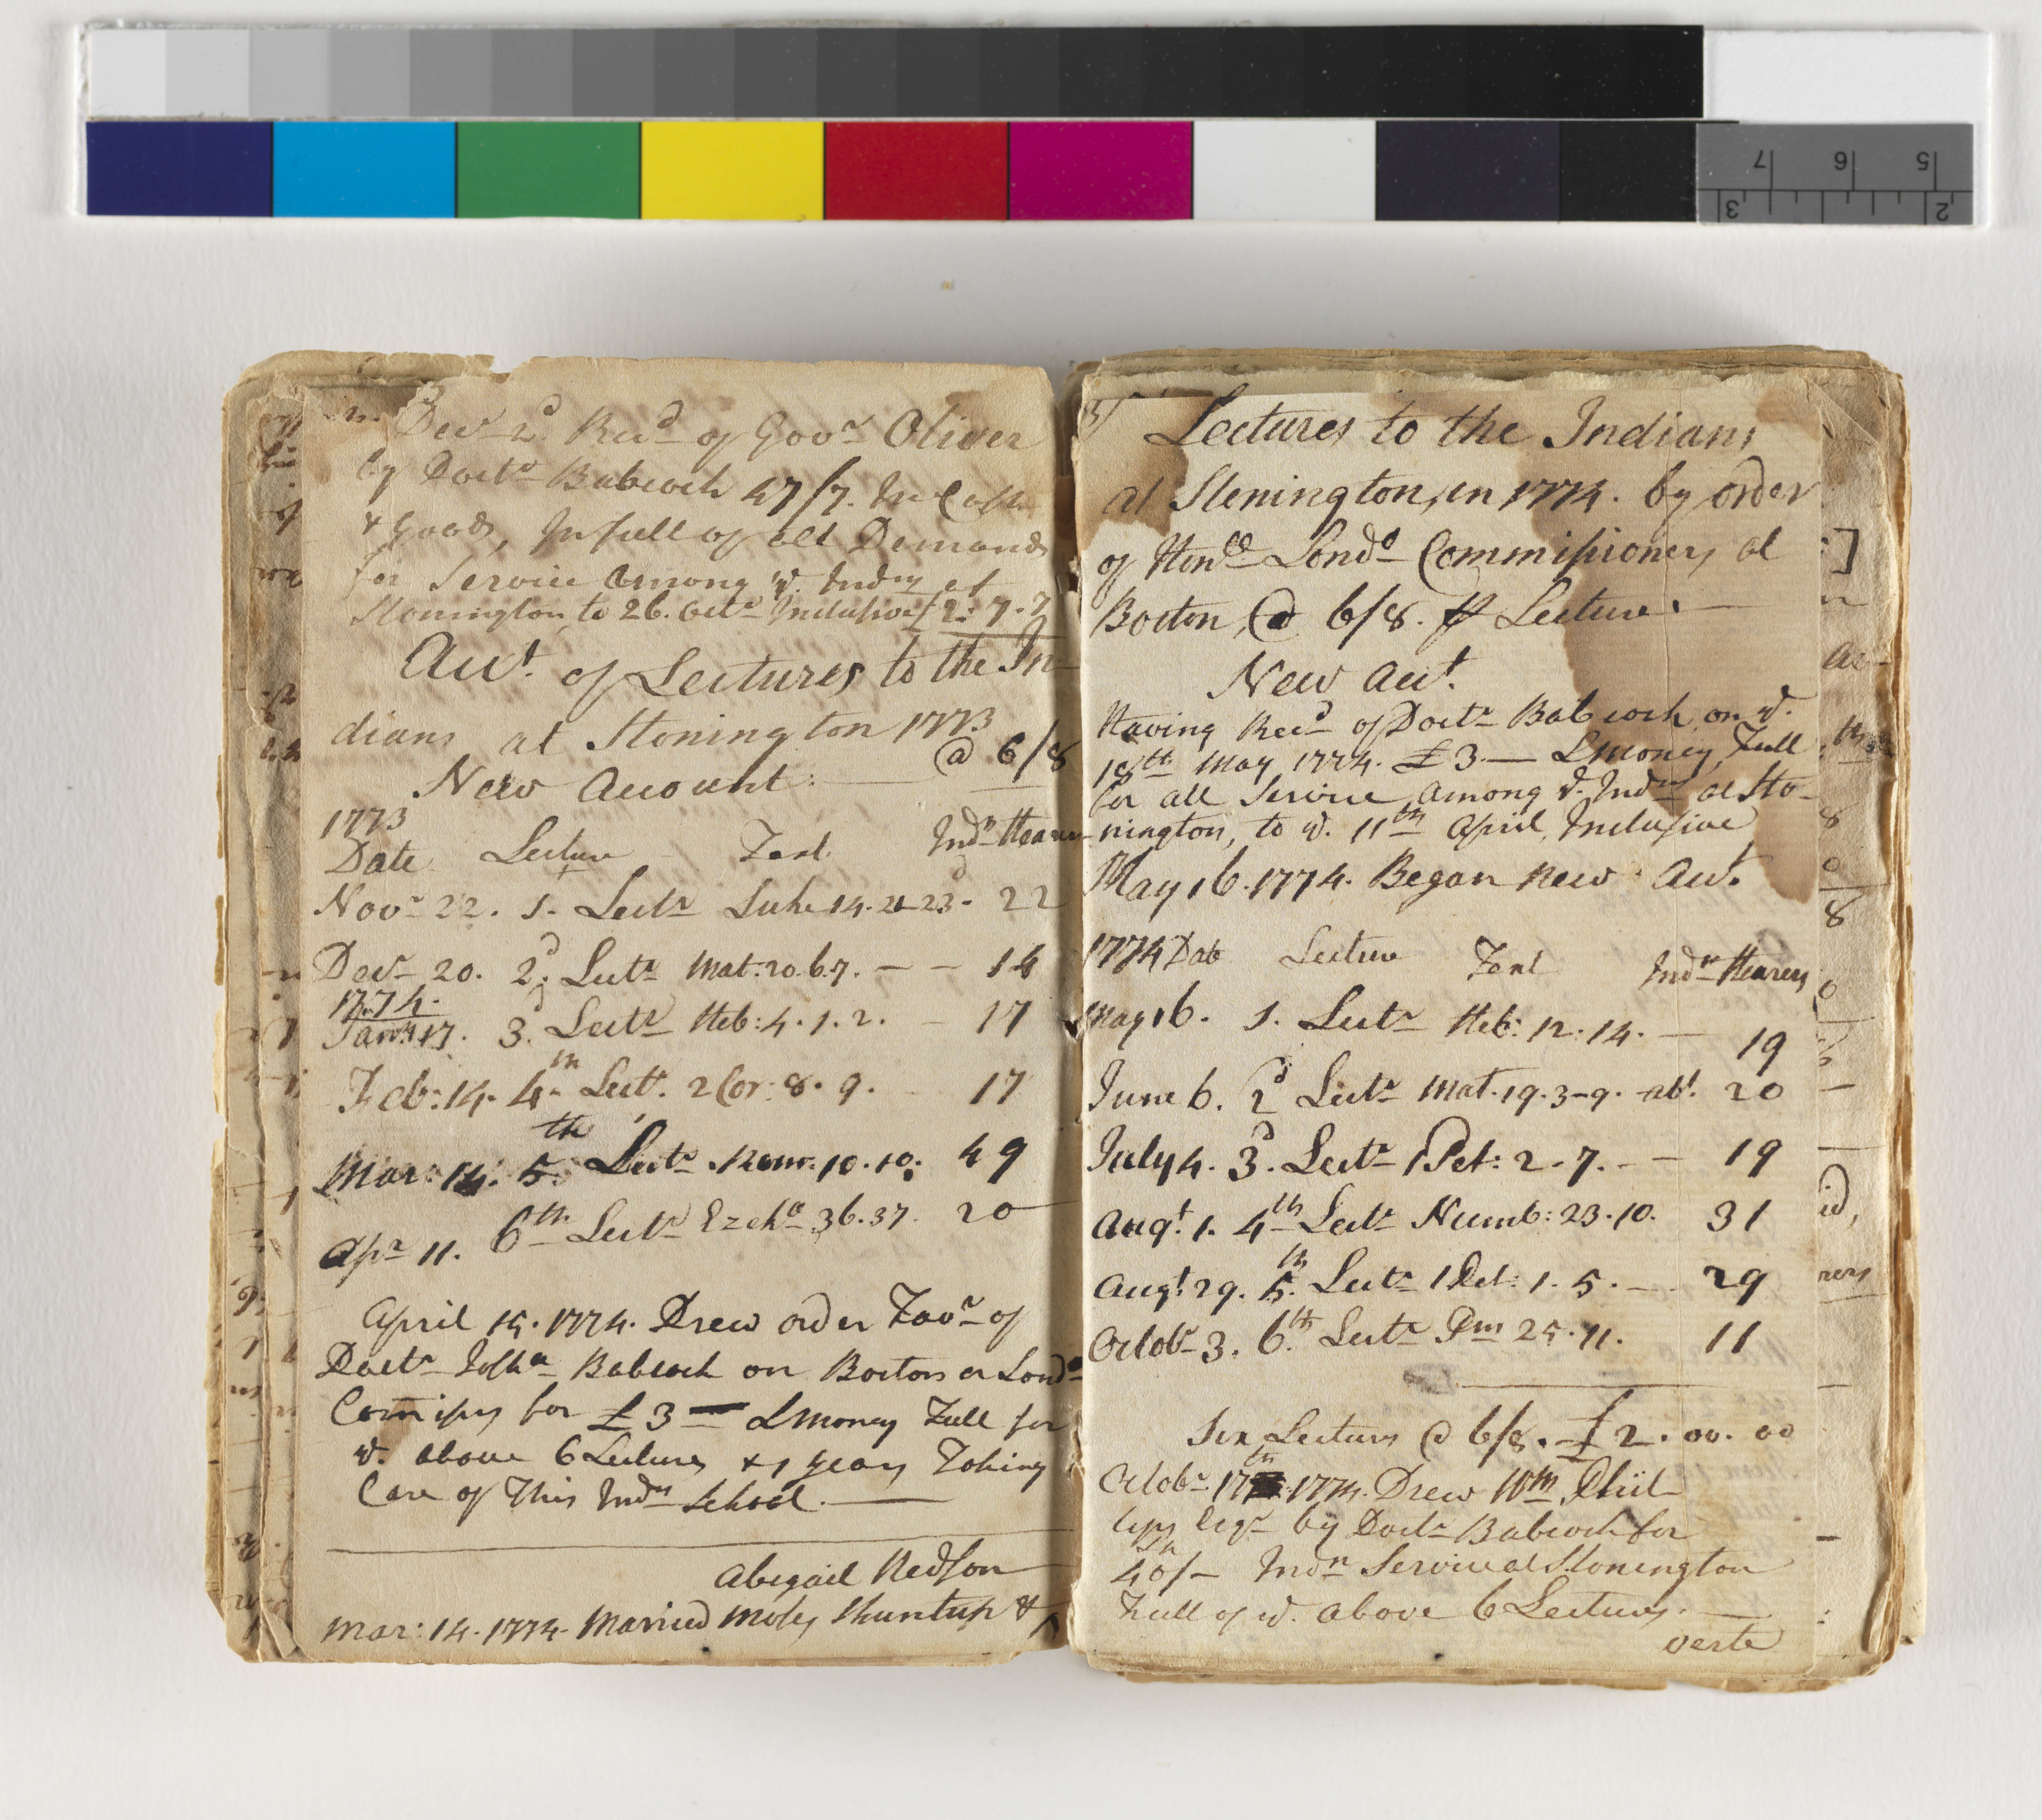 Decr 2d. Recd of Govr Oliver
by Doctr Babcock 47/7. In Cash
& Goods, In full of all Demands
for Service Among ye. Indns at
Stonington, to 26. Octr Inclusive £2: 7. 7
Acct. of Lectures to the In-
dians at Stonington 1773
@ 6/8
New Account:
1773
Date Lecture Text Indn Hearers
Novr 22. 1. Lectr Luke 14. 21-23. 22
Decr 20. 2d. Lectr Mat: 20. 6.7. — — 14
1774.
Jany 17. 3d. Lectr Heb: 4. 1. 2. — 17
Feb: 14. 4th Lectr. 2 Cor: 8. 9. 17
Mar: 14. 5th. Lectr Rom. 10. 10. 49
Apr 11. 6th Lectr Ezekl 36. 37. 20
April 15. 1774. Drew order Favr of
Doctr Joshа Babcock on Boston or Lond
Comissrs for £3 — LMoney Full for
ye. above 6 Lectures & 1 years Taking
Care of This Indn School.
Abigail Nedson
Mar: 14. 1774. Married Moses Shuntup &
Lectures to the Indians
at Stonington, in 1774. by order
of Honbl Londo Commissioners at
Boston, @ 6/8. ⅌ Lecture.
New Acct.
Having Recd of Doctr Babcock, on ye.
18th May 1774. £3 — LMoney, Full
for all Service Among ye. Indns at Sto-
nington, to ye. 11th April, Inclusive
May 16. 1774. Began New Acct.
1774 Date Lecture Text Indn Hearers
May 16. 1. Lectr Heb: 12. 14. — 19
June 6. 2d Lectr Mat. 19. 3-9. abt. 20
July 4. 3d. Lectr 1 Pet: 2. 7. — 19
Augt. 1. 4th Lectr Numb: 23. 10. 31
Augt. 29. 5th. Lectr 1 Pet: 1. 5. — 29
Octobr 3. 6th. Lectr Psm 25. 11. 11
Six Lectures @ 6/8. £2. 00. 00
Octobr 17th. 1774. Drew Wm Phil-
lips Esqr by Doctr Babcock for
40s/- Indn Service at Stonington
Full of ye. above 6 Lectures.
verte